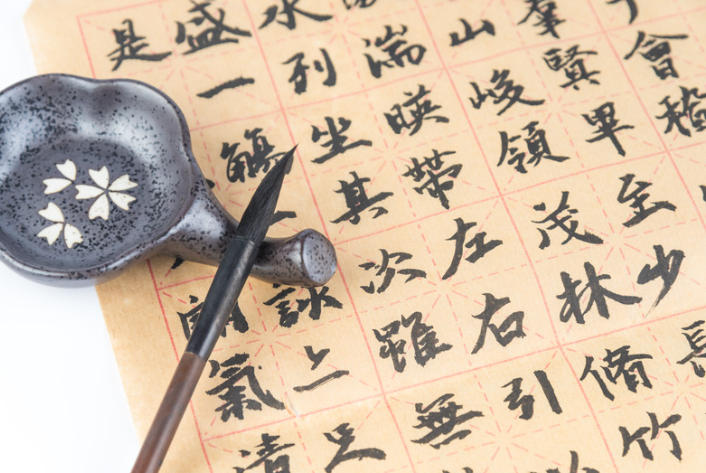 會稽
羣賢畢至少長
山峻領茂林脩竹
湍映帶左右引
水列坐其次雖無
盛一觴一詠足
是朗氣清